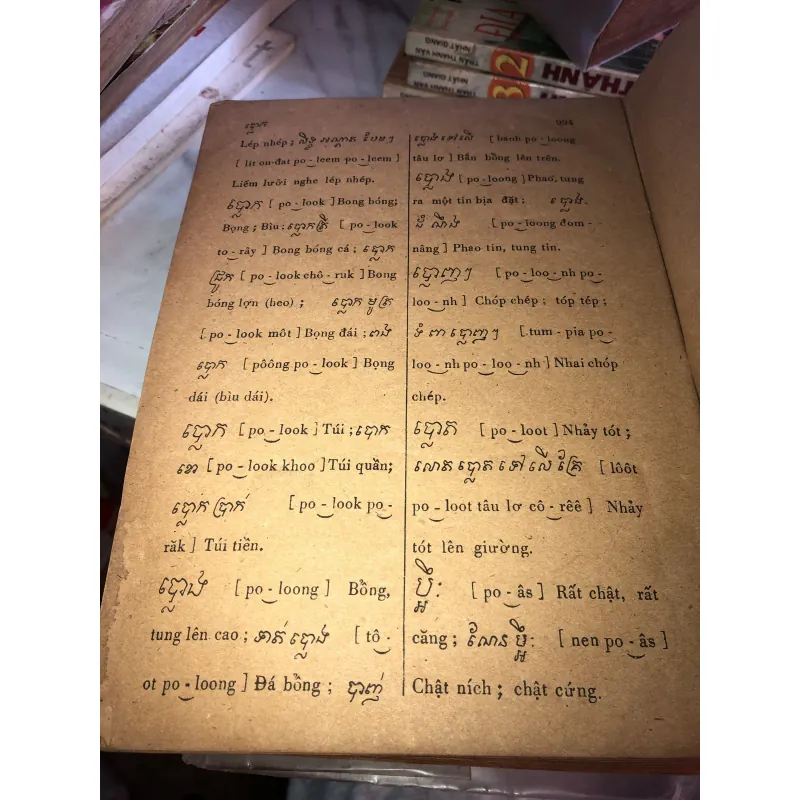 NHẬT GIANG
TRẦN THANH VÂN
NHẬT GIANG
32
THANH
ប្លោក
Lép nhép ;
[ lit on-dat po-leem po-leem ]
Liếm lưỡi nghe lép nhép.
ប្លោក [ po-look ] Bong bóng;
Bọng ; Bìu ; ប្លោកត្រី [ po-look
to-rây ] Bong bóng cá ; ប្លោក
ជ្រូក [ po-look chô-ruk ] Bong
bóng lợn (heo) ; ប្លោកមូត្រ
[ po-look môt ] Bọng đái ; ពង
ប្លោក [ pôông po-look ] Bọng
dái (bìu dái).
ប្លោក [ po-look ] Túi ; ប្លោក
ខោ [ po-look khoo ] Túi quần;
ប្លោកប្រាក់ [ po-look po-
răk ] Túi tiền.
ប្លោង [ po-loong ] Bồng,
tung lên cao ; ទាត់ប្លោង [ tô-
ot po-loong ] Đá bồng ; បាញ់
ប្លោងទៅលើ [ banh po-loong
tâu lơ ] Bắn bồng lên trên.
ប្លោង [ po-loong ] Phao, tung
ra một tin bịa đặt ; ប្លោង
ដំណឹង [ po-loong đom-
nâng ] Phao tin, tung tin.
ប្លោញៗ [ po-loo-nh po-
loo-nh ] Chóp chép ; tóp tép ;
ទំពាប្លោញៗ [ tum-pia po-
loo-nh po-loo-nh ] Nhai chóp
chép.
ប្លោត [ po-loot ] Nhảy tót ;
លោតប្លោតទៅលើគ្រែ [ lôôt
po-loot tâu lơ cô-rêê ] Nhảy
tót lên giường.
ប្អឹះ [ po-âs ] Rất chật, rất
căng ; ណែនប្អឹះ [ nen po-âs ]
Chật ních ; chật cứng.